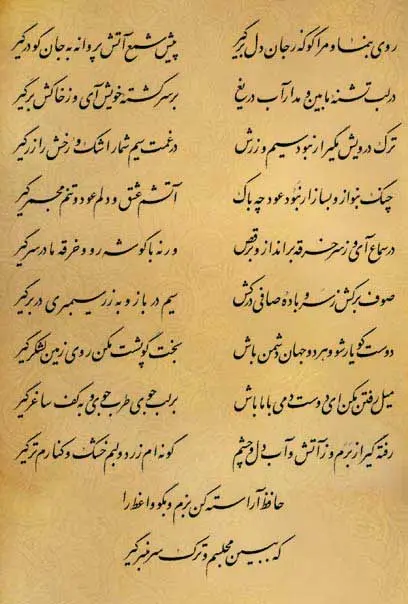 روی بنما و مرا گو که ز جان دل برگیر پیش شمع آتش پروانه به جان گو درگیر
در لب تشنه ما بین و مدار آب دریغ بر سر کشته خویش آی و ز خاکش برگیر
ترک درویش مگیر ار نبود سیم و زرش در غمت سیم شمار اشک و رخش را زر گیر
چنگ بنواز و بساز ار نبود عود چه باک آتشم عشق و دلم عود و تنم مجمر گیر
در سماع آی و ز سر خرقه برانداز و برقص ور نه با گوشه رو و خرقه ما در سر گیر
صوف برکش ز سر و باده صافی درکش سیم در باز و به زر سیمبری در بر گیر
دوست گو یار شو و هر دو جهان دشمن باش بخت گو پشت مکن روی زمین لشکر گیر
میل رفتن مکن ای دوست دمی با ما باش بر لب جوی طرب جوی و به کف ساغر گیر
رفته گیر از برم و ز آتش و آب دل و چشم گونه ام زرد و لبم خشک و کنارم تر گیر
حافظ آراسته کن بزم و بگو واعظ را
که ببین مجلسم و ترک سر منبر گیر